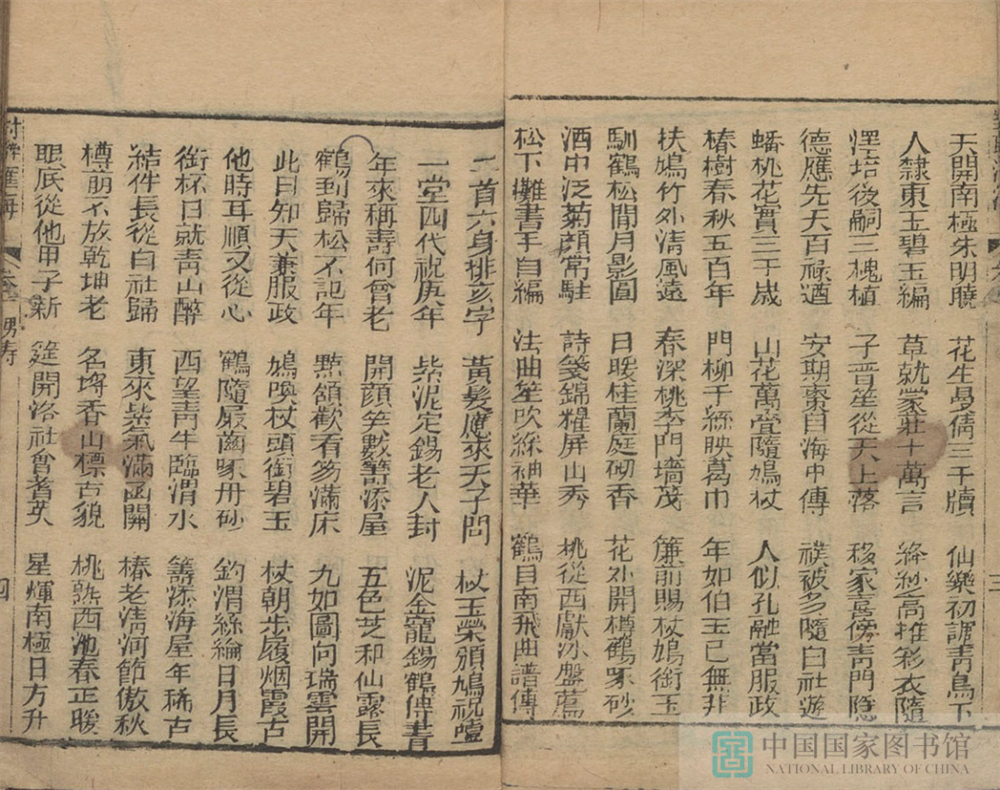 天開南極朱明曉 花生曼倩三千牘 仙樂初調青鳥下
人隸東王碧玉編 草就蒙莊十萬言 絳紗高推彩衣隨
澤培後嗣三槐植 子晉笙從天上落 移家喜傍青門隱
德應先天百祿遒 安期棗自海中傳 襆被多隨白社遊
蟠桃花實三千歲 山花萬疊隨鳩杖 人似孔融當服政
椿樹春秋五百年 門柳千絲映葛巾 年如伯玉已無非
扶鳩竹外清風遠 春深桃李門墻茂 簾前賜杖鳩銜玉
馴鶴松間月影圓 日暖桂蘭庭砌香 花外開樽鶴啄砂
酒中泛菊顏常駐 詩箋錦糶屏山秀 桃從西獻冰盤薦
松下攤書手自編 法曲笙吹絲袖華 鶴自南飛曲譜傳
二首六身排亥字 黃髮賡來天子問 杖玉榮頒鳩祝噎
一堂四代祝尻年 紫泥定錫老人封 泥金寵錫鶴傳書
年來稱壽何曾老 開顏笑數籌添屋 五色芝和仙露長
鶴到歸松不記年 點頷歡看笏滿床 九如圖向瑞雲開
此日知天兼服政 鳩喚杖頭銜碧玉 杖朝步履烟霞古
他時耳順又從心 鶴隨屐齒啄丹砂 釣渭絲綸日月長
銜杯日就青山醉 西望青牛臨渭水 籌添海屋年稀古
結伴長從白社歸 東來紫氣滿函關 椿老清河節傲秋
樽前不放乾坤老 名塲香山標古貌 桃熟西池春正暖
眼底從他甲子新 筵開洛社會耆英 星輝南極日方升
男壽
四
中国国家图书馆
NATIONAL LIBRARY OF CHINA